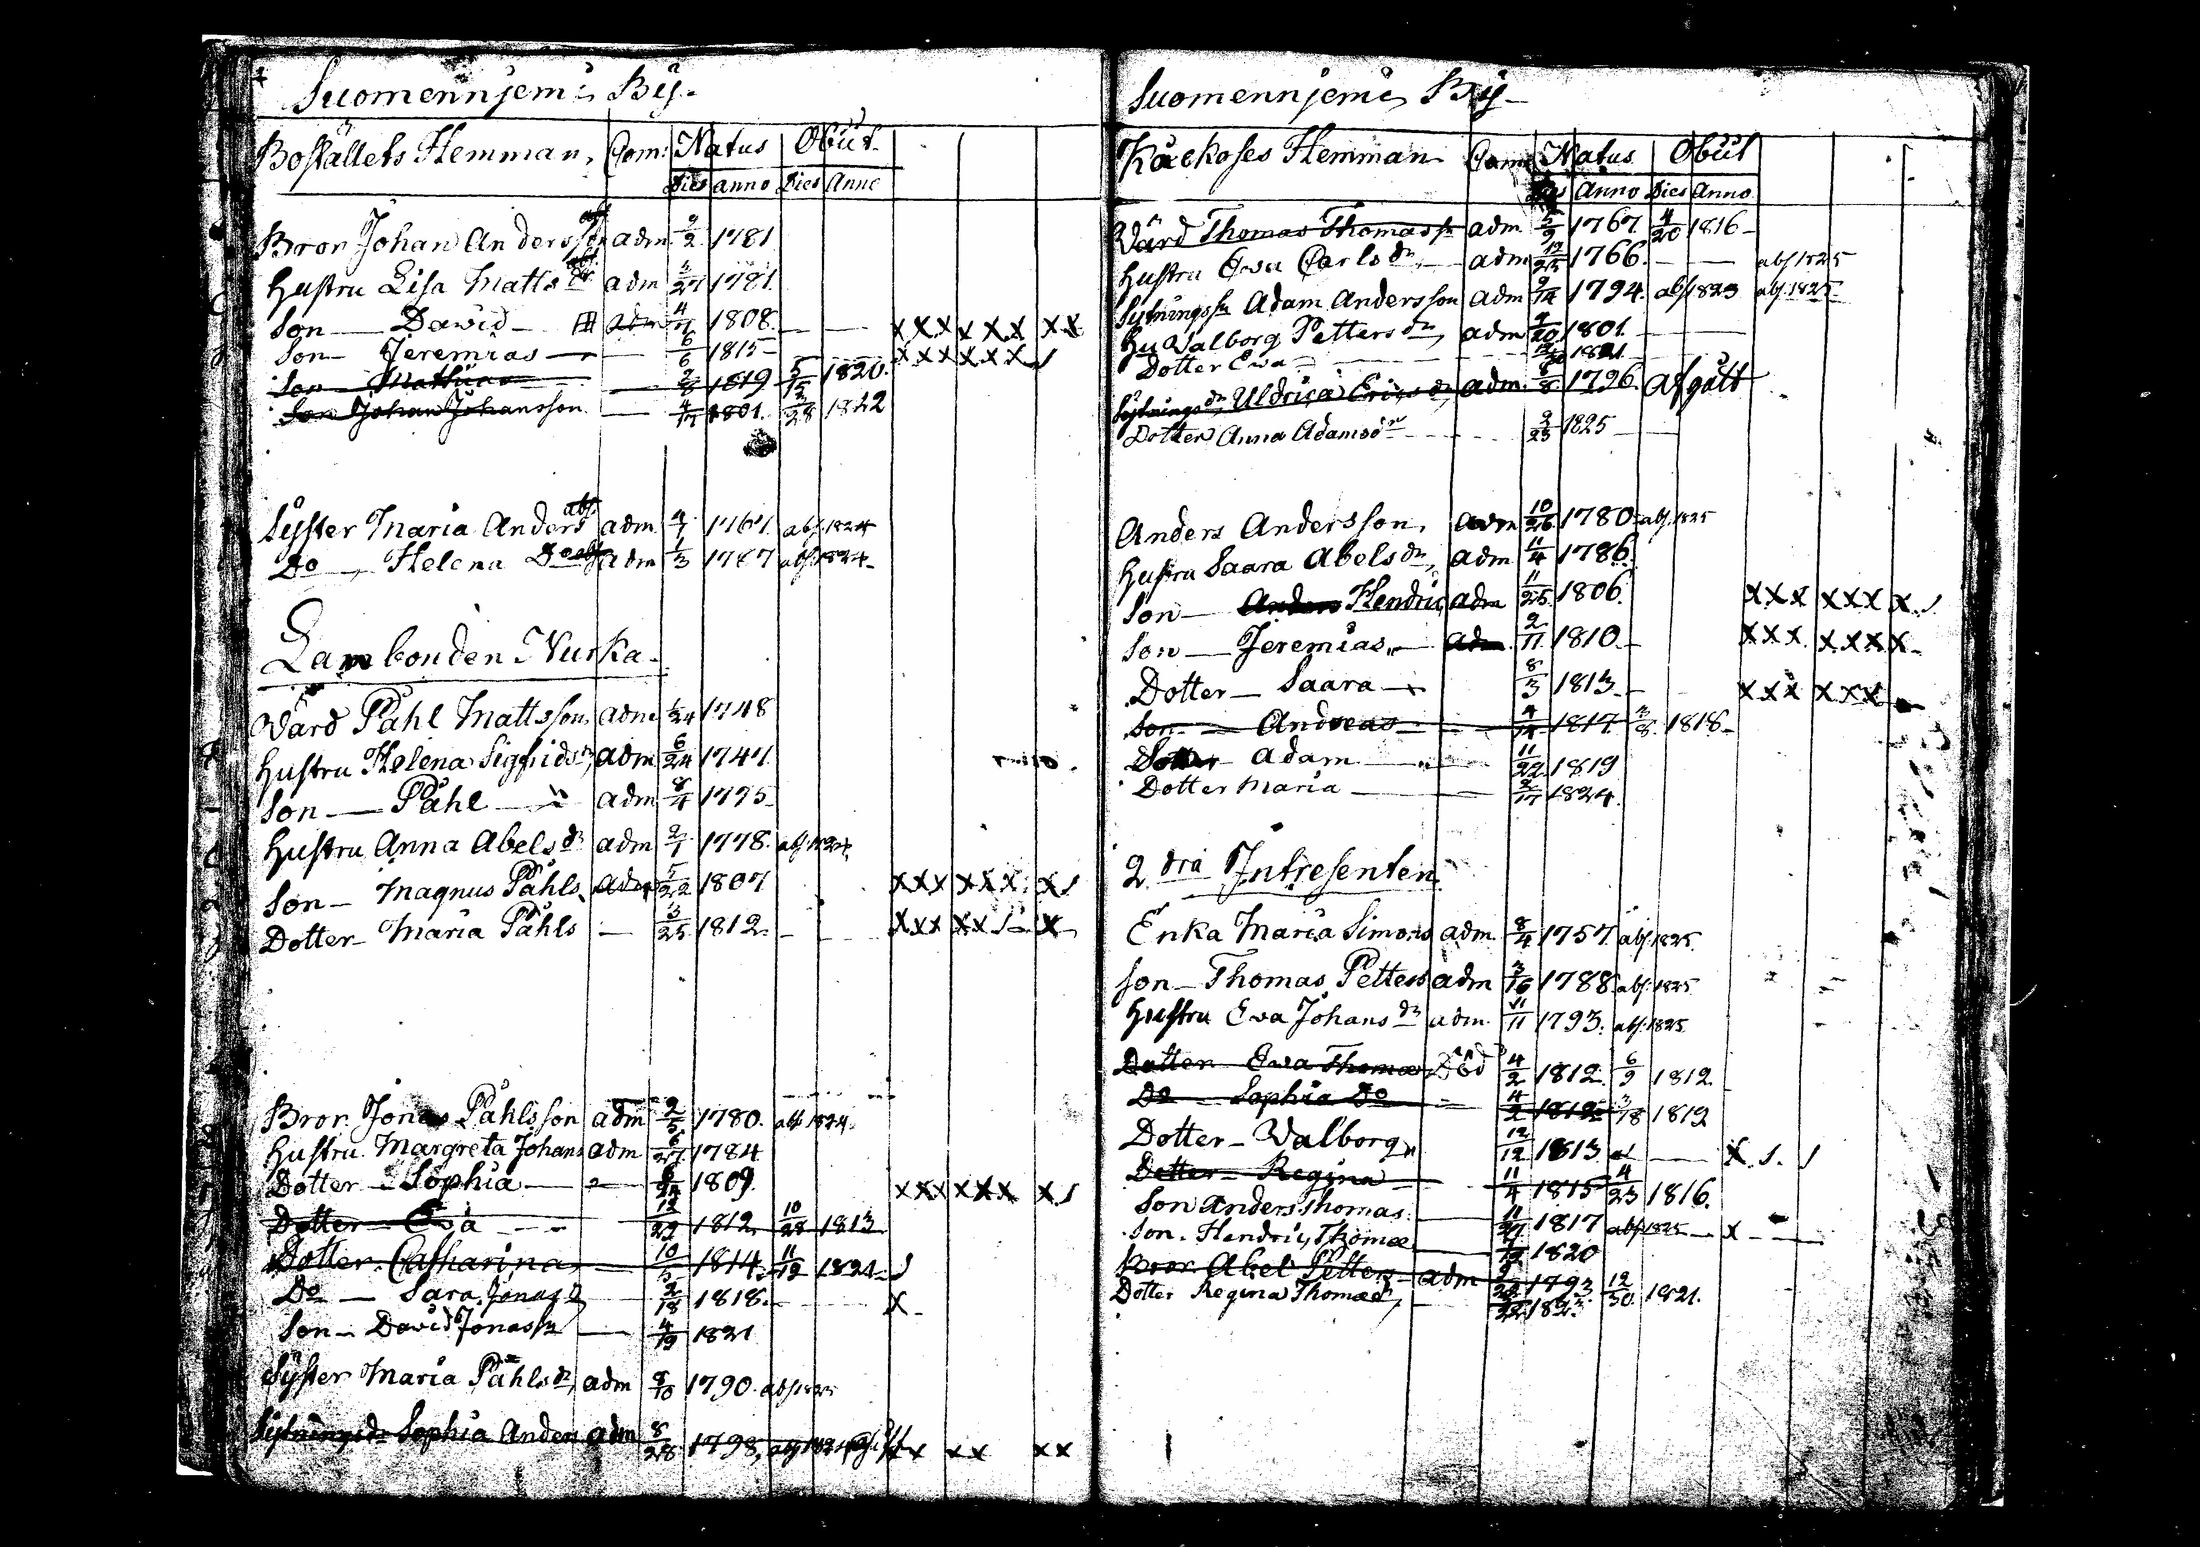 Suomennjemi By.
Boställets Hemman, Com: Natus Obiit
Dies anno Dies Anno
Bror Johan Andersson abs adm 9/2 1781
Hustru Lisa Matts dr abs. adm 1781.
Son — David — adm 1808. — — xxx xxx xx
Son — Jeremias — — 6/6 1815 — xxx xxx
Son — Mathias — 1819 5/15 1820.
Son Johan Johansson — 1801. /28 1822
Syster Maria Anders abs. adm 1767. abs. 1824
Do — Helena Do abs adm 1/3 1787 abs. 1824
Lambonden Nurka.
Värd Påhl Mattsson, adm /24 1748
Hustru Helena Sigfrids dr, adm 6/24 1747.
Son — Påhl — adm 8/4 1775
Hustru Anna Abels dr adm 2/1 1778. abs. 1824.
Son — Magnus Påhls. adm 5/22 1807 xxx xxx x
Dotter — Maria Påhls — /25 1812. — — xxx xx x
Bror. Jonas Påhlsson adm 1780. abs. 1824.
Hustru Margreta Johans adm 6/27 1784
Dotter — Sophia — /24 1809. xxx xxx x
Dotter — Eva — 12/29 1812. 10/28 1813
Dotter. Catharina — 10/ 1814. 11/12 1821
Do — Sara Jonas 2/18 1818. — x
Son — David Jonass. — 4/19 1821
Syster Maria Påhls dr, adm 8/10 1790. abs. 1825
Sytnings dr Sophia Anders adm 8/28 1798, abs 1824 xx xx
Suomennjemi By
Käckoses Hemman Com Natus Obiit
Dies Anno Dies Anno
Värd Thomas Thomass. adm 5/9 1767 4/20 1816
Hustru Eva Carls dr, — adm 12/25 1766. — — abs 1825
Sytnings Adam Andersson adm 9/14 1794. abs 1823 abs. 1825.
Hu Valborg Petters dr, adm /20 1801. — —
Dotter Eva — 1821
Sytnings dr, Uldrica Erics dr, adm. 8/8 1796. Afgått
Dotter Anna Adamsdr — 2/23 1825 —
Anders Andersson, adm 10/26 1780 abs. 1825
Hustru Saara Abels dr, adm 11/4 1786.
Son — Anders Hendric adm 11/25 1806. xxx xxx x
Son — Jeremias — adm. 2/11 1810. xxx xxxx
Dotter — Saara — 8/3 1813. — xxx xxx
Son — Andreas — 4/ 1817 /8 1818
Dotter Adam — 11/22 1819
Dotter Maria — 2/17 1824.
2 dra Intresenten
Enka Maria Simons adm 8/4 1757. abs. 1825.
Son — Thomas Petters adm /16 1788. abs. 1825.
Hustru Eva Johans dr adm. 11/11 1793. abs. 1825.
Dotter — Eva Thomæ Död 4/2 1812. 6/9 1812.
Do — Sophia Do — 4/2 1812. /18 1819
Dotter — Valborg 12/12 1813 — x
Dotter — Regina 11/4 1815 4/23 1816.
Son Anders Thomas. — 11/27 1817 abs. 1825 — x
Son. Hendric Thomæ — 1820
Bror Abel Petters adm 1793. 12/30. 1821.
Dotter Regina Thomæ — 1823.